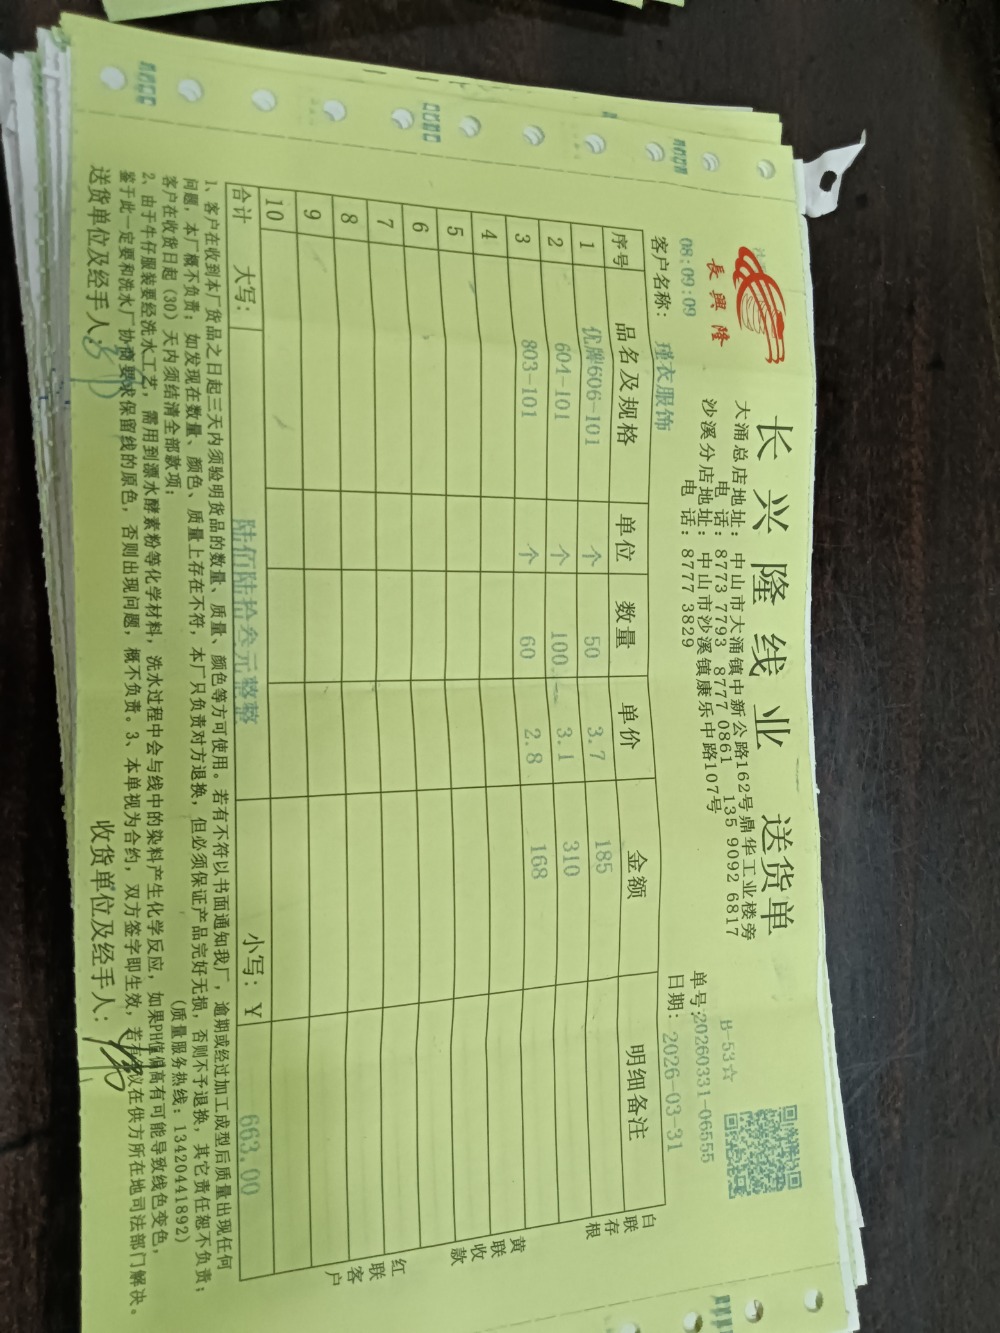 長興隆
长兴隆线业 送货单
大涌总店地址: 中山市大涌镇中新公路162号鼎华工业楼旁
电 话: 8773 7793 8777 0861 135 9092 6817
沙溪分店地址: 中山市沙溪镇康乐中路107号
电 话: 8777 3829
B-53☆
单号:20260331-06555
日期: 2026-03-31
08:09:09
客户名称: 瑾衣服饰
序号 品名及规格 单位 数量 单价 金额 明细备注
1 优牌606-101 个 50 3.7 185
2 604-101 个 100 3.1 310
3 803-101 个 60 2.8 168
4
5
6
7
8
9
10
合计 大写: 陆佰陆拾叁元整整 小写: Y 663.00
白联存根
黄联收款
红联客户
1、客户在收到本厂货品之日起三天内须验明货品的数量、质量、颜色等方可使用。若有不符以书面通知我厂, 逾期或经过加工成型后质量出现任何
问题, 本厂概不负责; 如发现在数量、颜色、质量上存在不符, 本厂只负责对方退换, 但必须保证产品完好无损, 否则不予退换, 其它责任恕不负责;
客户在收货日起 (30) 天内须结清全部款项; (质量服务热线: 13420441892)
2、由于牛仔服装要经洗水工艺, 需用到漂水酵素粉等化学材料, 洗水过程中会与线中的染料产生化学反应, 如果PH值偏高有可能导致线色变色,
鉴于此一定要和洗水厂协商要求保留线的原色, 否则出现问题, 概不负责。3、本单视为合约, 双方签字即生效, 若有争议在供方所在地司法部门解决。
送货单位及经手人: 收货单位及经手人: